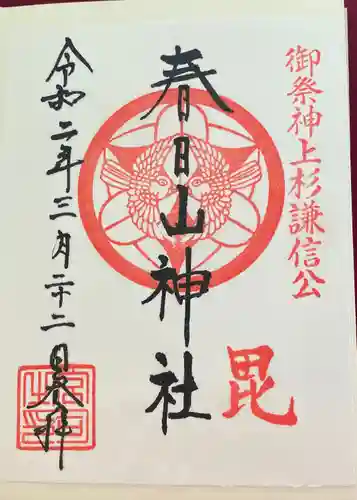 御祭神上杉謙信公
毘
春日山神社
令和二年三月二十二日奉拝